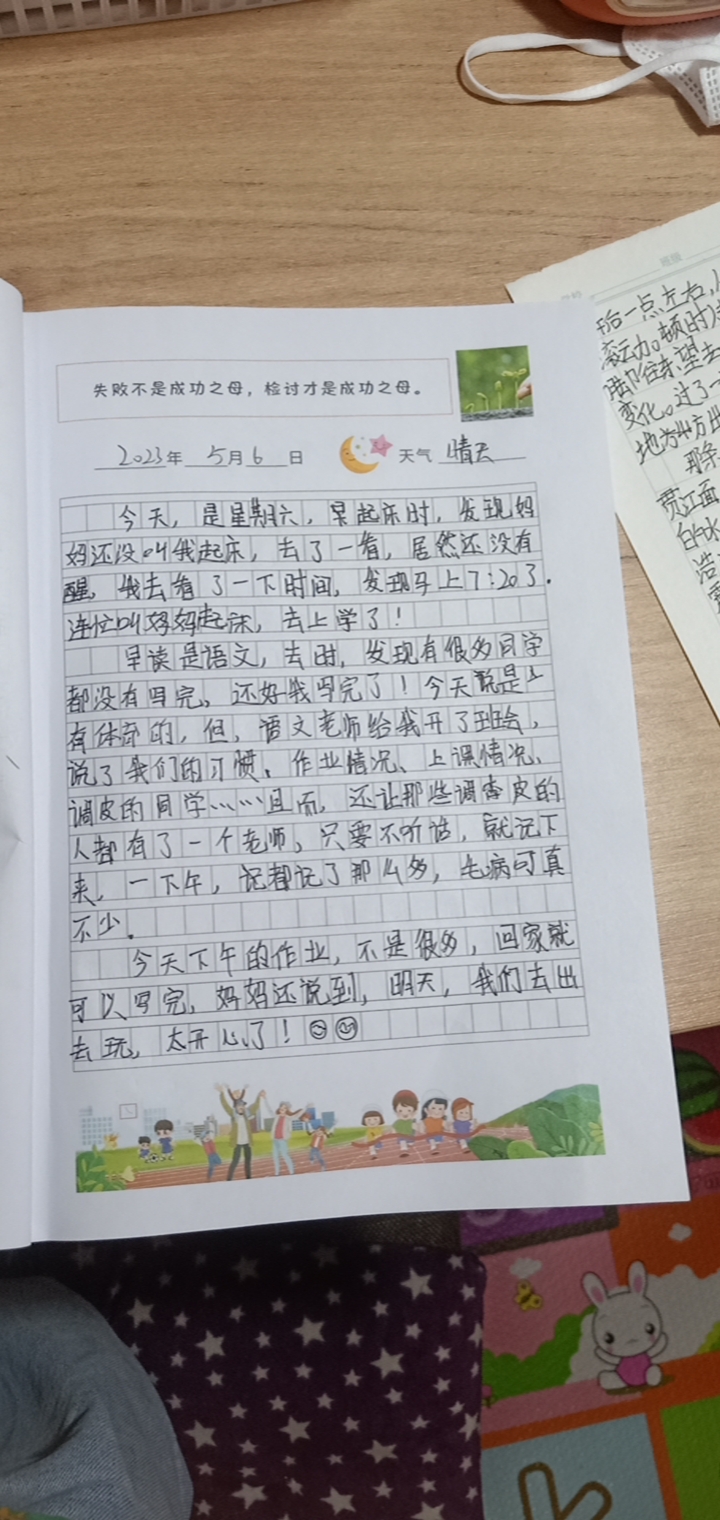 失败不是成功之母，检讨才是成功之母。
2023年 5月6日 天气 晴天
今天，是星期六，早起床时，发现妈
妈还没叫我起床，去了一看，居然还没有
醒，我去看了一下时间，发现马上7:20了.
连忙叫妈妈起床，去上学了！
早读是语文，去时，发现有很多同学
都没有写完。还好我写完了！今天说是上
有体育的，但，语文老师给我开了班会，
说了我们的习惯、作业情况、上课情况、
调皮的同学……且而，还让那些调皮的
人都有了一个老师，只要不听话，就记下
来，一下午，记都记了那么多，毛病可真
不少.
今天下午的作业，不是很多，回家就
可以写完，妈妈还说到，明天，我们去出
去玩，太开心了！
班级
午后一点左右，
滚动。顿时
踮脚往东望去
变化。过了一
地方出
那条
贯江面
白的水
浩